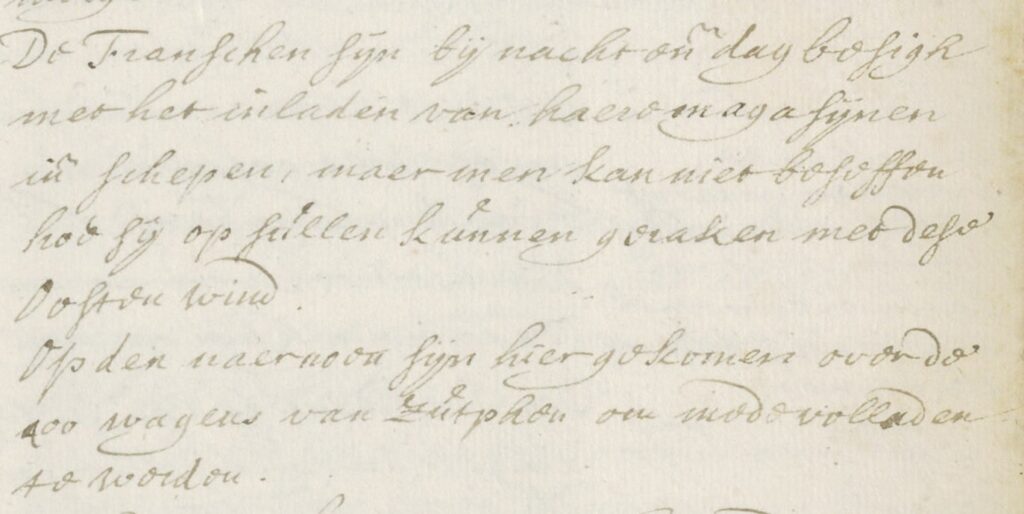 De Franschen sijn bij nacht en dag besigh
met het inladen van haere magasijnen
in schepen, maer men kan niet beseffen
hoe sij op sullen kunnen geraken met dese
Oosten wind.
Op den naernoen sijn hier gekomen over de
wagens van Zutphen om mede volladen
te worden.